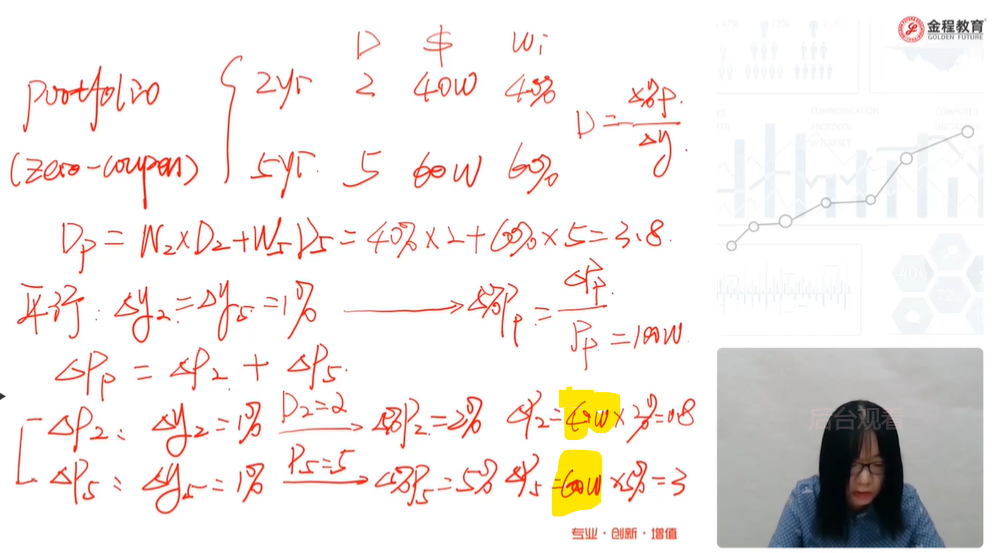 金程教育
GOLDEN FUTURE
D $ Wi
portfolio 2yr 2 40W 40%
(zero-coupon) 5yr 5 60W 60%
D = Δ%P / Δy
Dp = W2×D2+W5D5 = 40%×2+60%×5=3.8
平行: Δy2=Δy5=1% → Δ%Pp = ΔPp / Pp =100W
ΔPp = ΔP2 + ΔP5
ΔP2: Δy2=1% D2=2 → Δ%P2=2% ΔP2=40W×2%=0.8
ΔP5: Δy5=1% P5=5 → Δ%P5=5% ΔP5=60W×5%=3
后台观看
专业·创新·增值